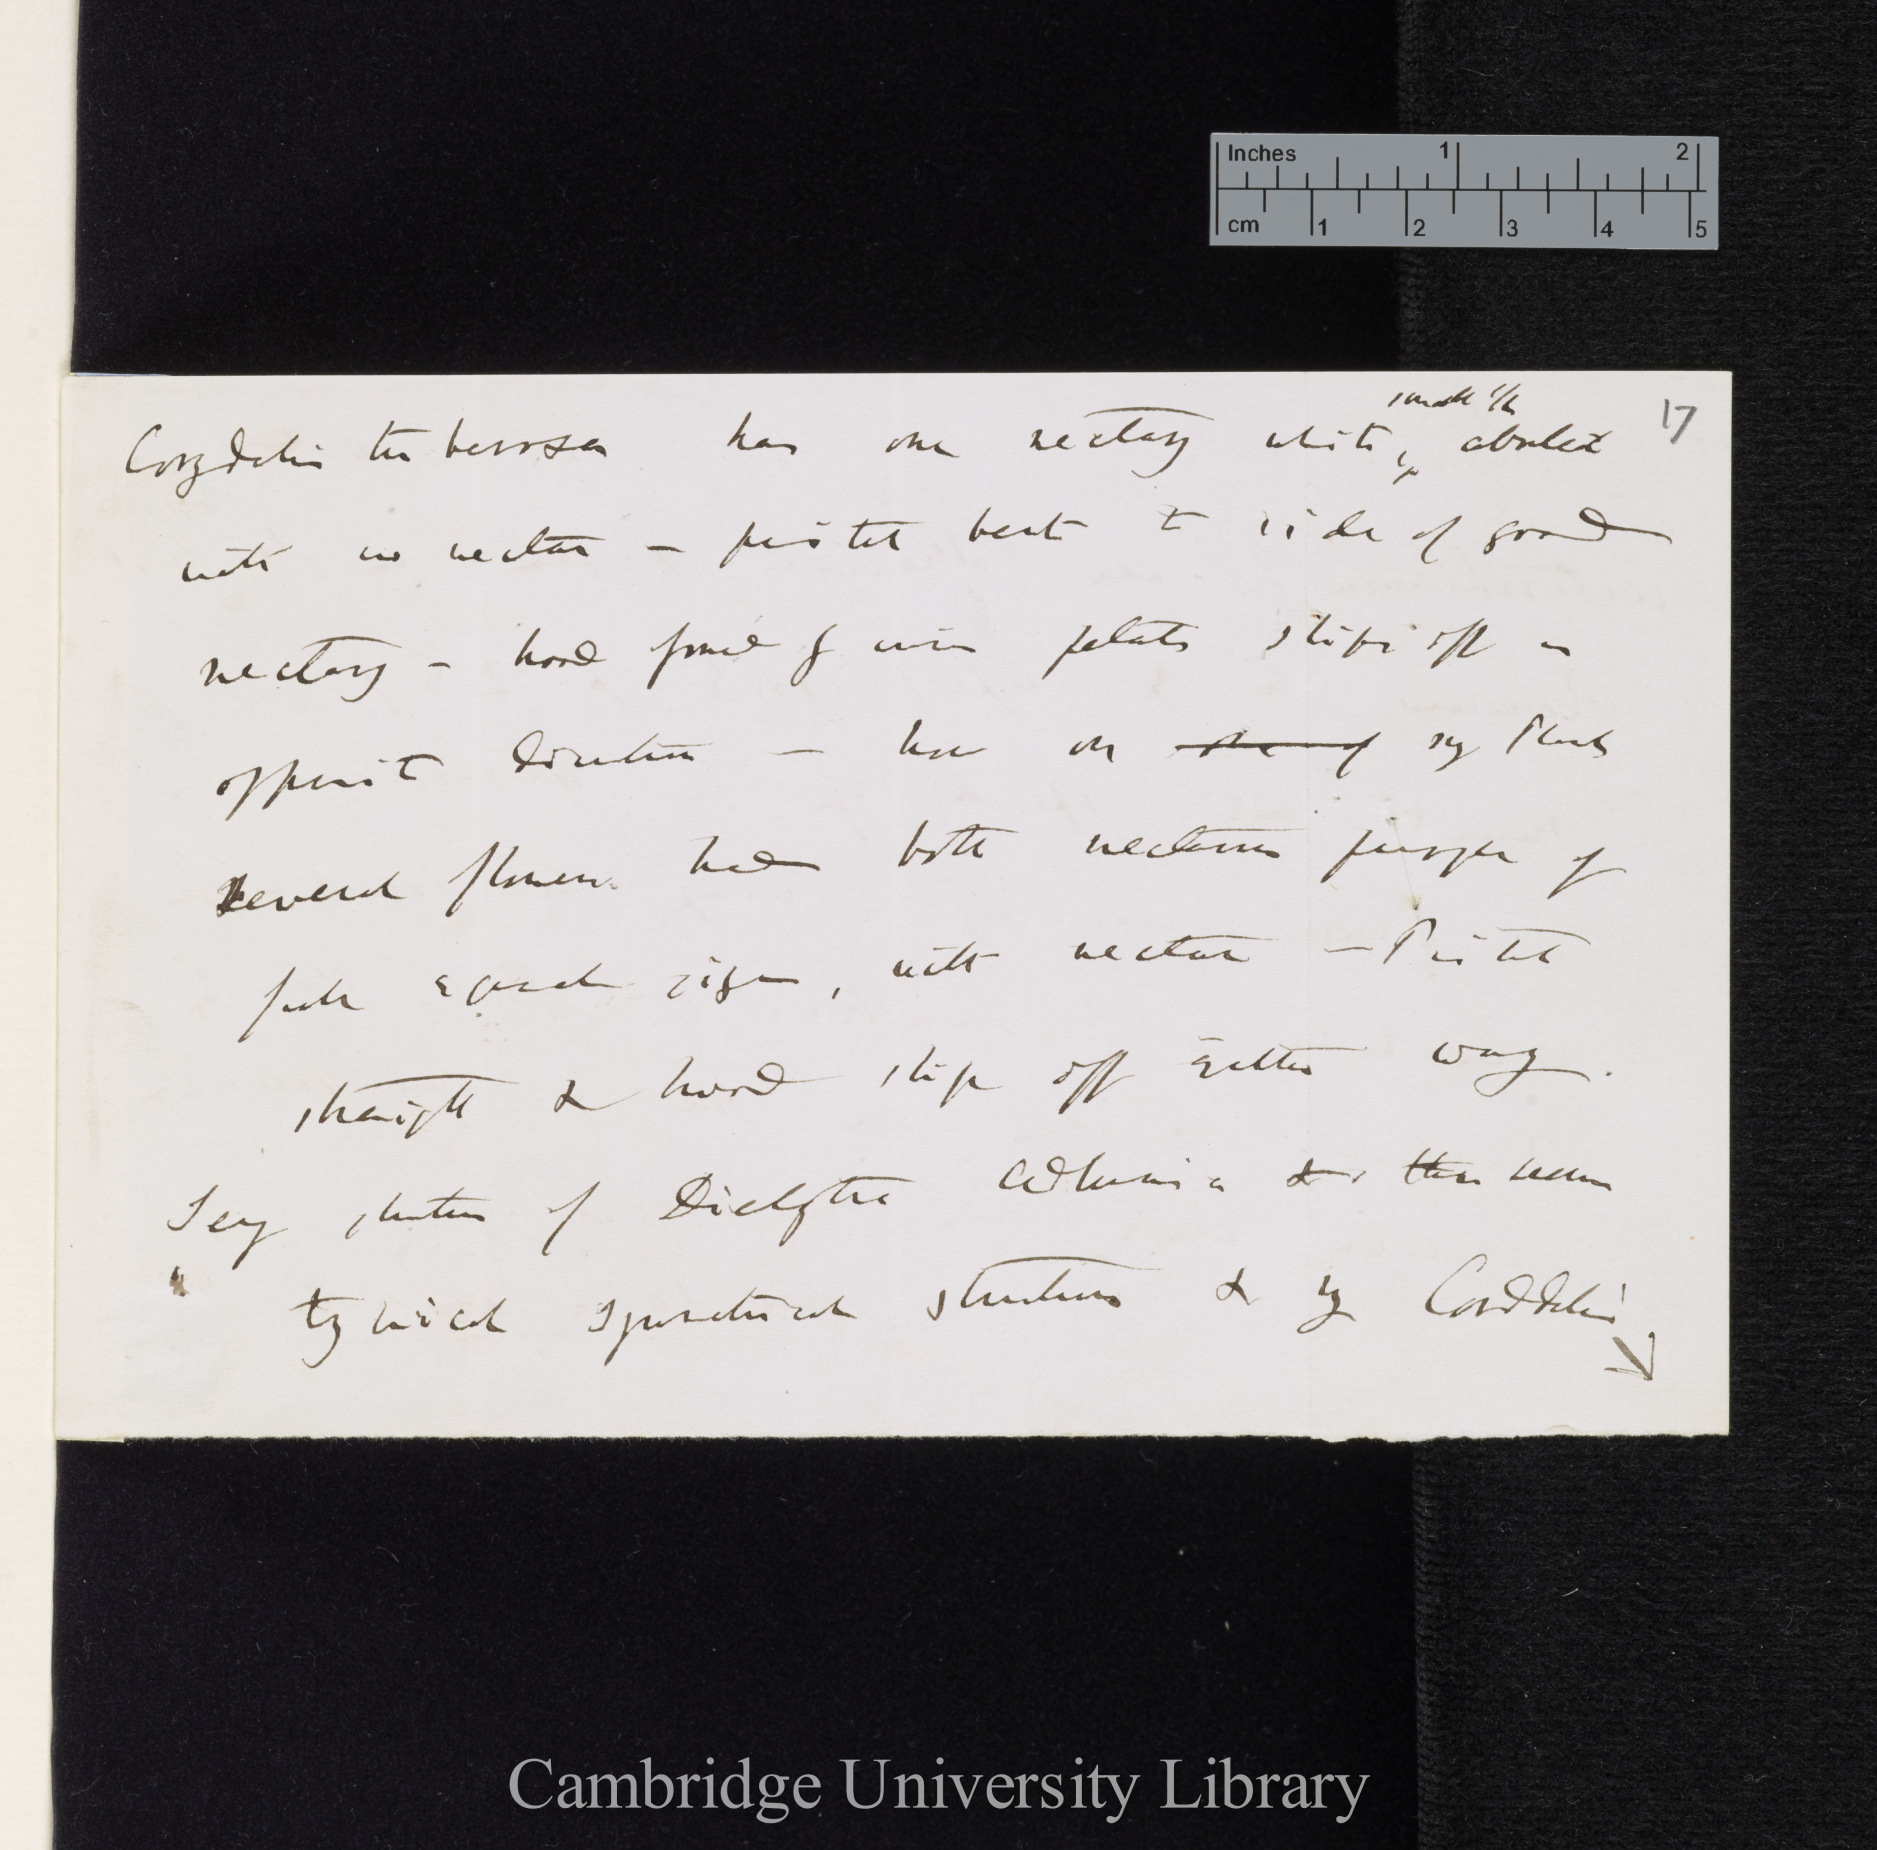 Inches 1 2
cm 1 2 3 4 5
17
small
Corydalis tuberosa has one nectary white, abortd
with no nectar — pistil bent to side of good
nectary — hood formed of inner petals slips off in
opposite direction — how on one of my Plants
several flowers had both nectaries purple of
full equal size, with nectar — Pistil
straight & hood slips off either way.
Seeing structure of Dielytra Adlumia & this seems
typical symmetrical structure & my Corydalis
Cambridge University Library